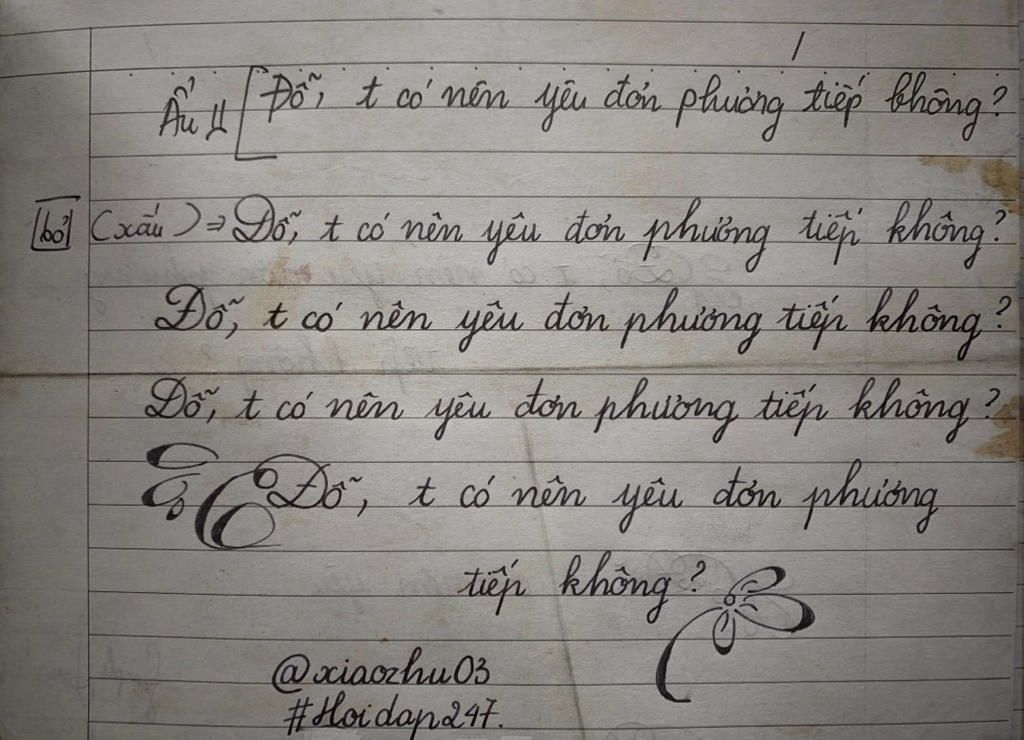 Ẩu [Đỗ, t có nên yêu đơn phương tiếp không?
bỏ (xấu) ⇒ Đỗ, t có nên yêu đơn phương tiếp không?
Đỗ, t có nên yêu đơn phương tiếp không?
Đỗ, t có nên yêu đơn phương tiếp không?
Đỗ, t có nên yêu đơn phương
tiếp không?
@xiaozhu03
#Hoidap247.